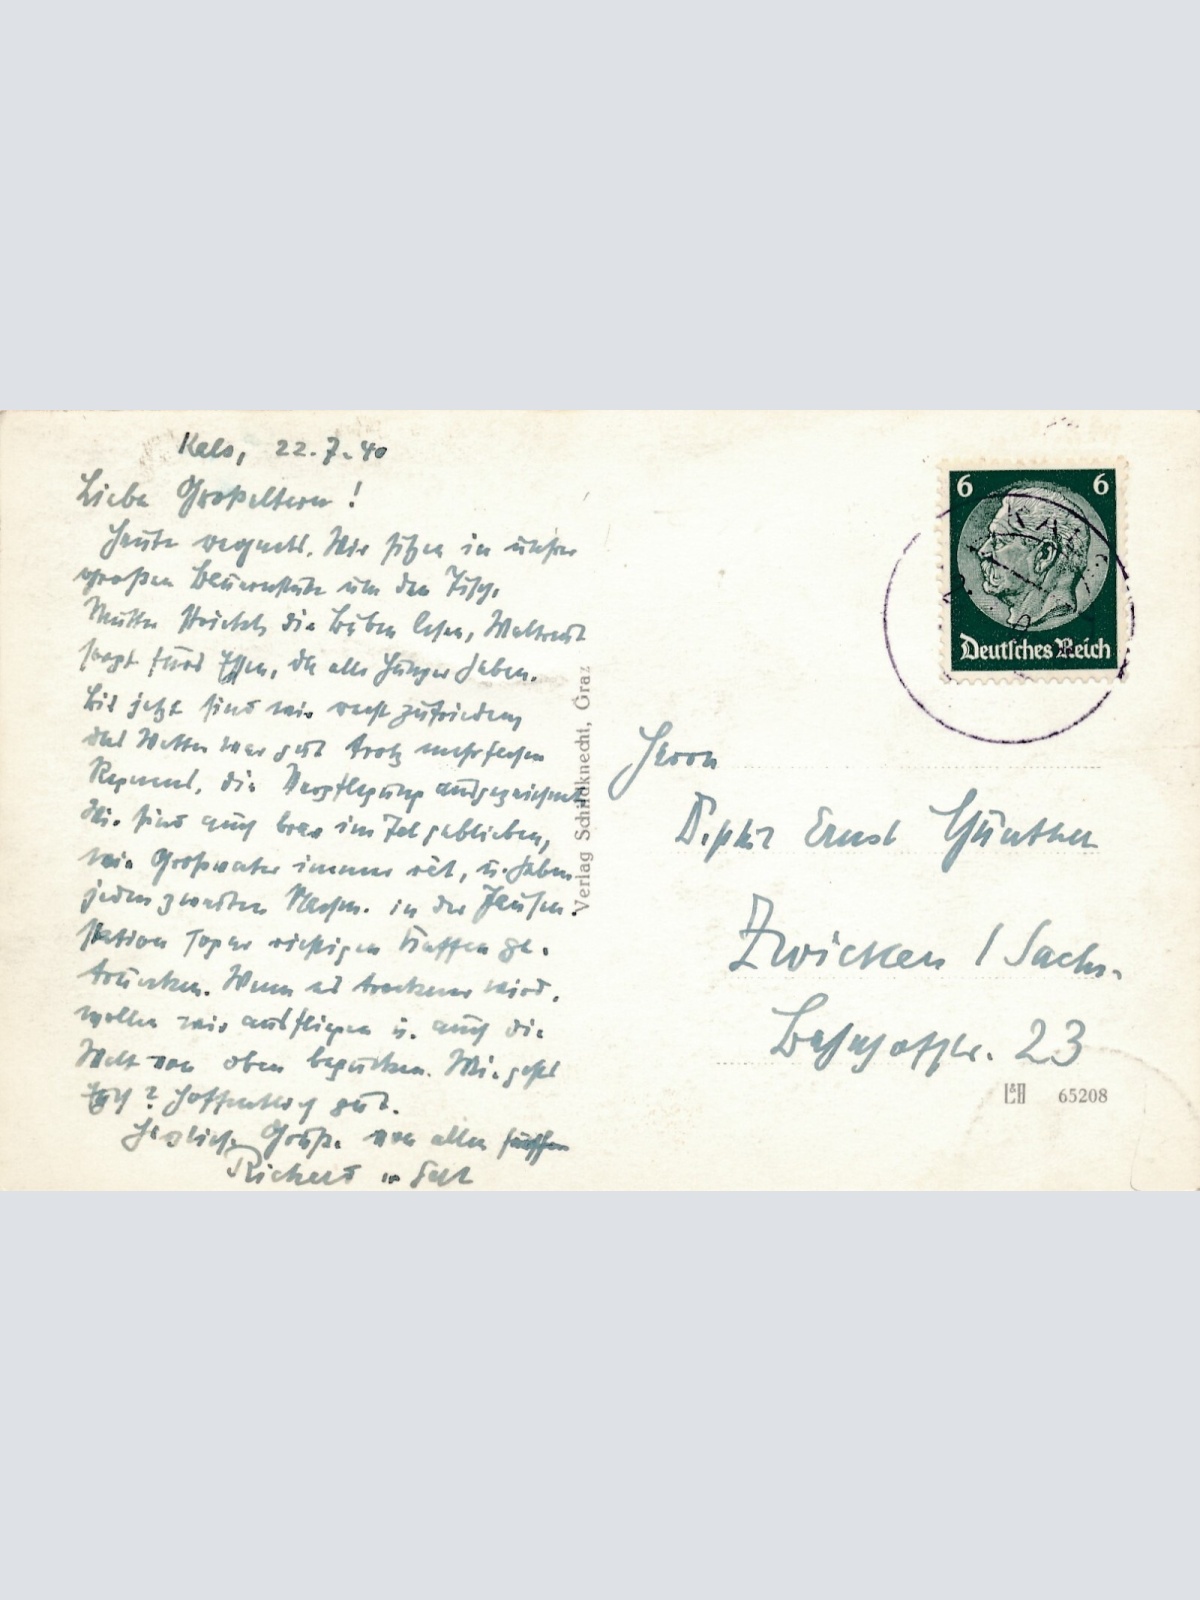 Kals, 22.7.40
Liebe Großeltern!
Heute regnets. Wir sitzen in unsrer
großen Bauernstube um den Tisch.
Mutter strickt, die Buben lesen, Waltraut
sorgt fürs Essen, da alle Hunger haben.
Bis jetzt sind wir recht zufrieden,
das Wetter war gut trotz mehrfachen
Regnens, die Verpflegung ausgezeichnet.
Wir sind auch brav im Tal geblieben,
wie Großvater immer rät, u. haben
jeden zweiten Nachm. in der Jausen-
station sogar richtigen Kaffee ge-
trunken. Wenn es trockener wird,
wollen wir ausfliegen u. auch die
Welt von oben begucken. Wie geht
Euch? Hoffentlich gut.
Herzliche Grüße von allen
Richard u.
Verlag Schildknecht, Graz
6 6
Deutsches Reich
Herrn
Ernst Günther
Zwickau / Sachs.
Bahnhofstr. 23
65208